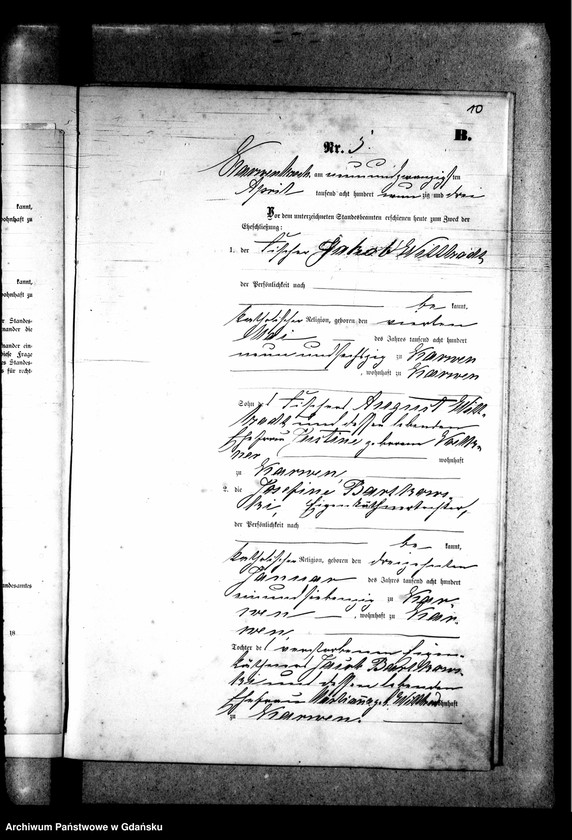 10
B.
Nr. 5.
Karwenbruch am neunundzwanzigsten
April tausend acht hundert neunzig und drei
Vor dem unterzeichneten Standesbeamten erschienen heute zum Zweck der
Eheschließung:
1. der Fischer Jakob Willbrodt
der Persönlichkeit nach
be kannt,
katholischer Religion, geboren den vierten
Mai des Jahres tausend acht hundert
neunundsechzig zu Karwen
, wohnhaft zu Karwen
Sohn des Fischers August Will-
brodt und dessen lebenden
Ehefrau Justine geborene
wohnhaft
zu Karwen,
2. die Josefine Bartkows-
ki, Eigenkäthnertochter,
der Persönlichkeit nach
be kannt,
katholischer Religion, geboren den dreizehnten
Januar des Jahres tausend acht hundert
einundsiebenzig zu Kar-
wen, wohnhaft zu Kar-
wen,
Tochter des verstorbenen Eigen-
käthners Jacob Bartkows-
ki und dessen lebenden
Ehefrau Marianna geb. wohnhaft
zu Karwen.
kannt,
wohnhaft zu
kannt,
wohnhaft zu
Standes-
nander die
nander ein-
diese Frage
es Standes-
s für recht-
andesamtes
18
Archiwum Państwowe w Gdańsku